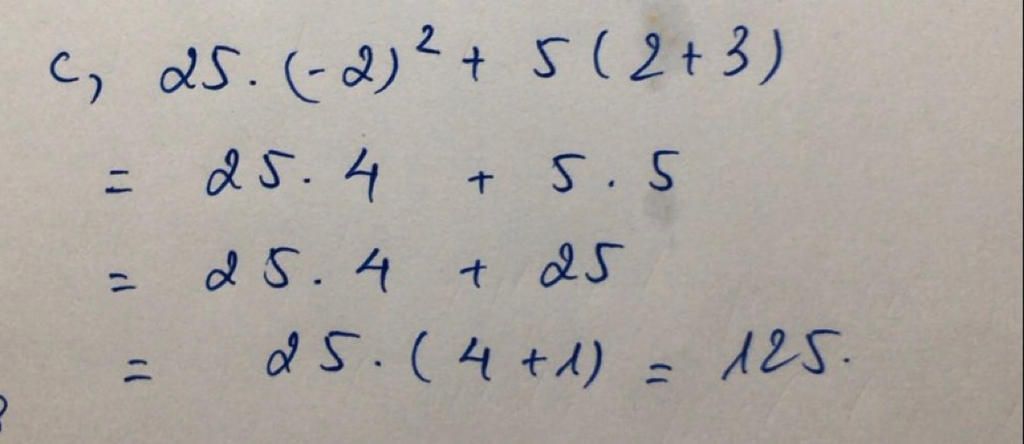 c, 25.(-2)² + 5(2+3)
= 25.4 + 5.5
= 25.4 + 25
= 25.(4+1) = 125.